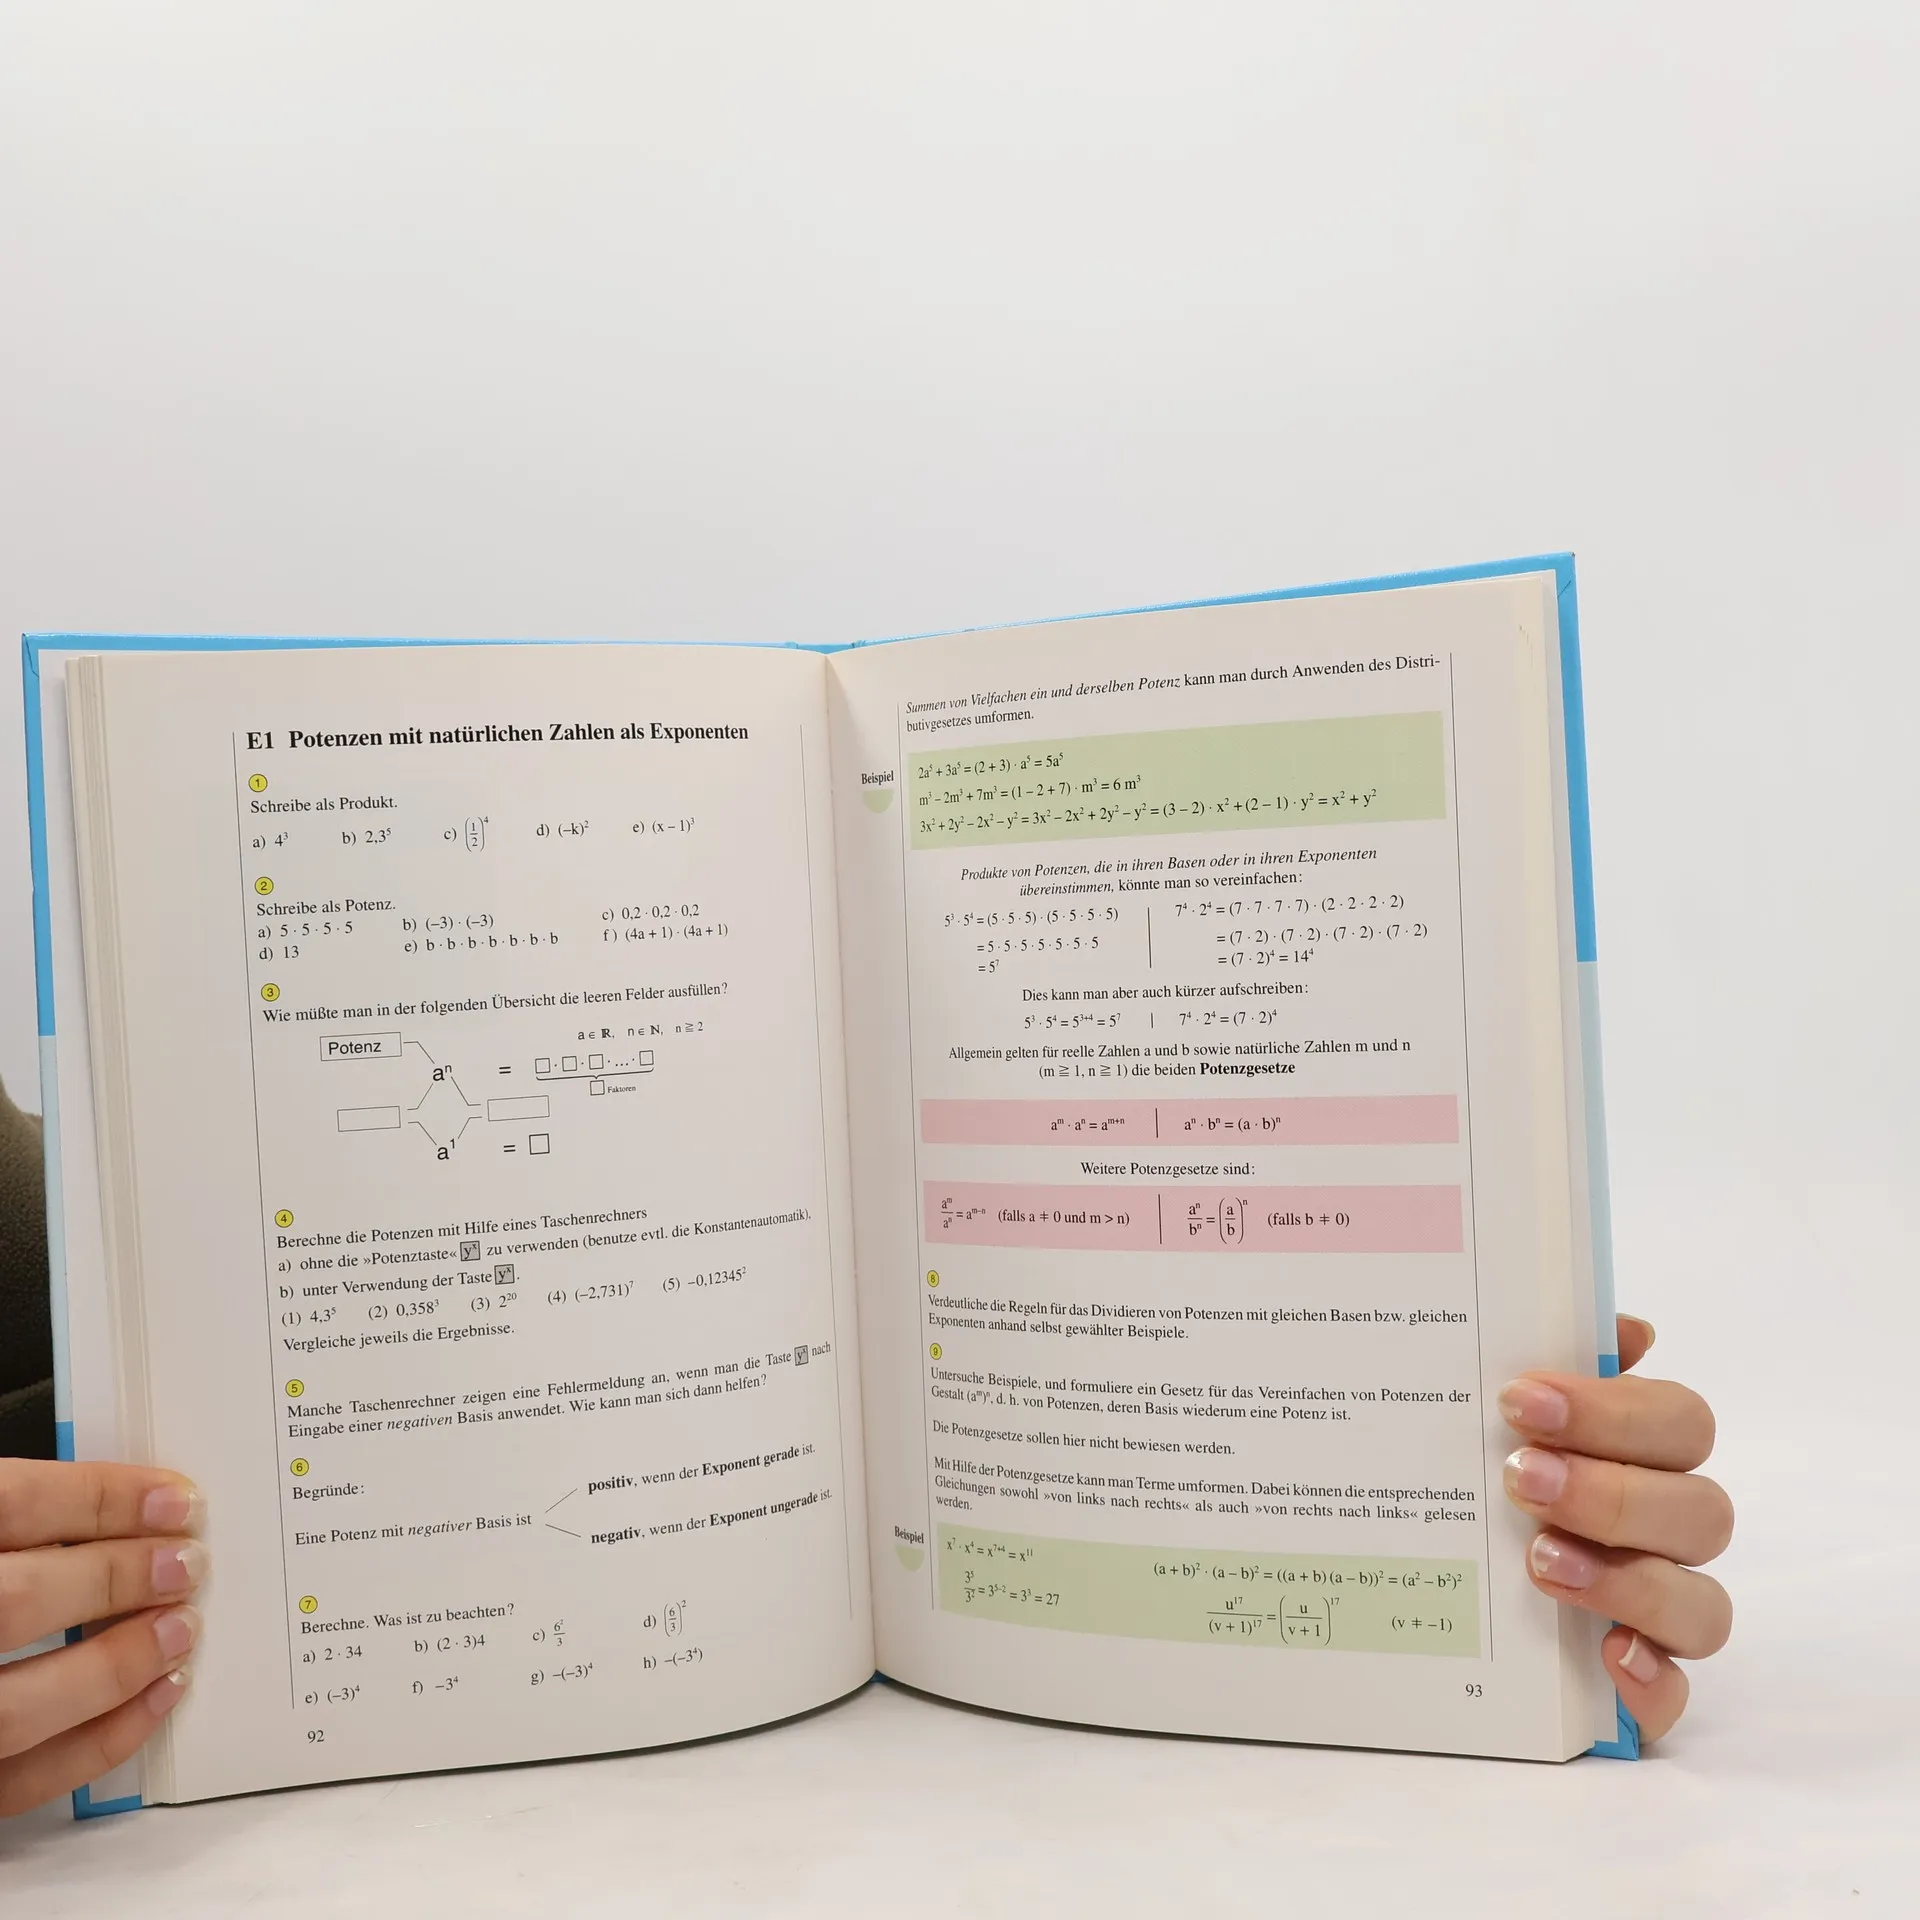 E1 Potenzen mit natürlichen Zahlen als Exponenten
1
Schreibe als Produkt.
a) 4³ b) 2,3⁵ c) (1/2)⁴ d) (–k)² e) (x – 1)³
2
Schreibe als Potenz.
a) 5 · 5 · 5 · 5 b) (–3) · (–3) c) 0,2 · 0,2 · 0,2
d) 13 e) b · b · b · b · b · b · b f) (4a + 1) · (4a + 1)
3
Wie müßte man in der folgenden Übersicht die leeren Felder ausfüllen?
a ∈ ℝ, n ∈ ℕ, n ≧ 2
Potenz
aⁿ = □ · □ · □ · ... · □
□ Faktoren
a¹ = □
4
Berechne die Potenzen mit Hilfe eines Taschenrechners
a) ohne die »Potenztaste« yˣ zu verwenden (benutze evtl. die Konstantenautomatik),
b) unter Verwendung der Taste yˣ.
(1) 4,3⁵ (2) 0,358³ (3) 2²⁰ (4) (–2,731)⁷ (5) –0,12345²
Vergleiche jeweils die Ergebnisse.
5
Manche Taschenrechner zeigen eine Fehlermeldung an, wenn man die Taste yˣ nach
Eingabe einer negativen Basis anwendet. Wie kann man sich dann helfen?
6
Begründe:
positiv, wenn der Exponent gerade ist.
Eine Potenz mit negativer Basis ist
negativ, wenn der Exponent ungerade ist.
7
Berechne. Was ist zu beachten?
a) 2 · 34 b) (2 · 3)4 c) 6²/3 d) (6/3)²
e) (–3)⁴ f) –3⁴ g) –(–3)⁴ h) –(–3⁴)
92
Summen von Vielfachen ein und derselben Potenz kann man durch Anwenden des Distri-
butivgesetzes umformen.
Beispiel
2a⁵ + 3a⁵ = (2 + 3) · a⁵ = 5a⁵
m³ – 2m³ + 7m³ = (1 – 2 + 7) · m³ = 6 m³
3x² + 2y² – 2x² – y² = 3x² – 2x² + 2y² – y² = (3 – 2) · x² + (2 – 1) · y² = x² + y²
Produkte von Potenzen, die in ihren Basen oder in ihren Exponenten
übereinstimmen, könnte man so vereinfachen:
5³ · 5⁴ = (5 · 5 · 5) · (5 · 5 · 5 · 5) | 7⁴ · 2⁴ = (7 · 7 · 7 · 7) · (2 · 2 · 2 · 2)
= 5 · 5 · 5 · 5 · 5 · 5 · 5 | = (7 · 2) · (7 · 2) · (7 · 2) · (7 · 2)
= 5⁷ | = (7 · 2)⁴ = 14⁴
Dies kann man aber auch kürzer aufschreiben:
5³ · 5⁴ = 5³⁺⁴ = 5⁷ | 7⁴ · 2⁴ = (7 · 2)⁴
Allgemein gelten für reelle Zahlen a und b sowie natürliche Zahlen m und n
(m ≧ 1, n ≧ 1) die beiden Potenzgesetze
aᵐ · aⁿ = aᵐ⁺ⁿ | aⁿ · bⁿ = (a · b)ⁿ
Weitere Potenzgesetze sind:
aᵐ/aⁿ = aᵐ⁻ⁿ (falls a ≠ 0 und m > n) | aⁿ/bⁿ = (a/b)ⁿ (falls b ≠ 0)
8
Verdeutliche die Regeln für das Dividieren von Potenzen mit gleichen Basen bzw. gleichen
Exponenten anhand selbst gewählter Beispiele.
9
Untersuche Beispiele, und formuliere ein Gesetz für das Vereinfachen von Potenzen der
Gestalt (aᵐ)ⁿ, d. h. von Potenzen, deren Basis wiederum eine Potenz ist.
Die Potenzgesetze sollen hier nicht bewiesen werden.
Mit Hilfe der Potenzgesetze kann man Terme umformen. Dabei können die entsprechenden
Gleichungen sowohl »von links nach rechts« als auch »von rechts nach links« gelesen
werden.
Beispiel
x⁷ · x⁴ = x⁷⁺⁴ = x¹¹ (a + b)² · (a – b)² = ((a + b) (a – b))² = (a² – b²)²
3⁵/3² = 3⁵⁻² = 3³ = 27 u¹⁷/(v + 1)¹⁷ = (u/(v + 1))¹⁷ (v ≠ –1)
93